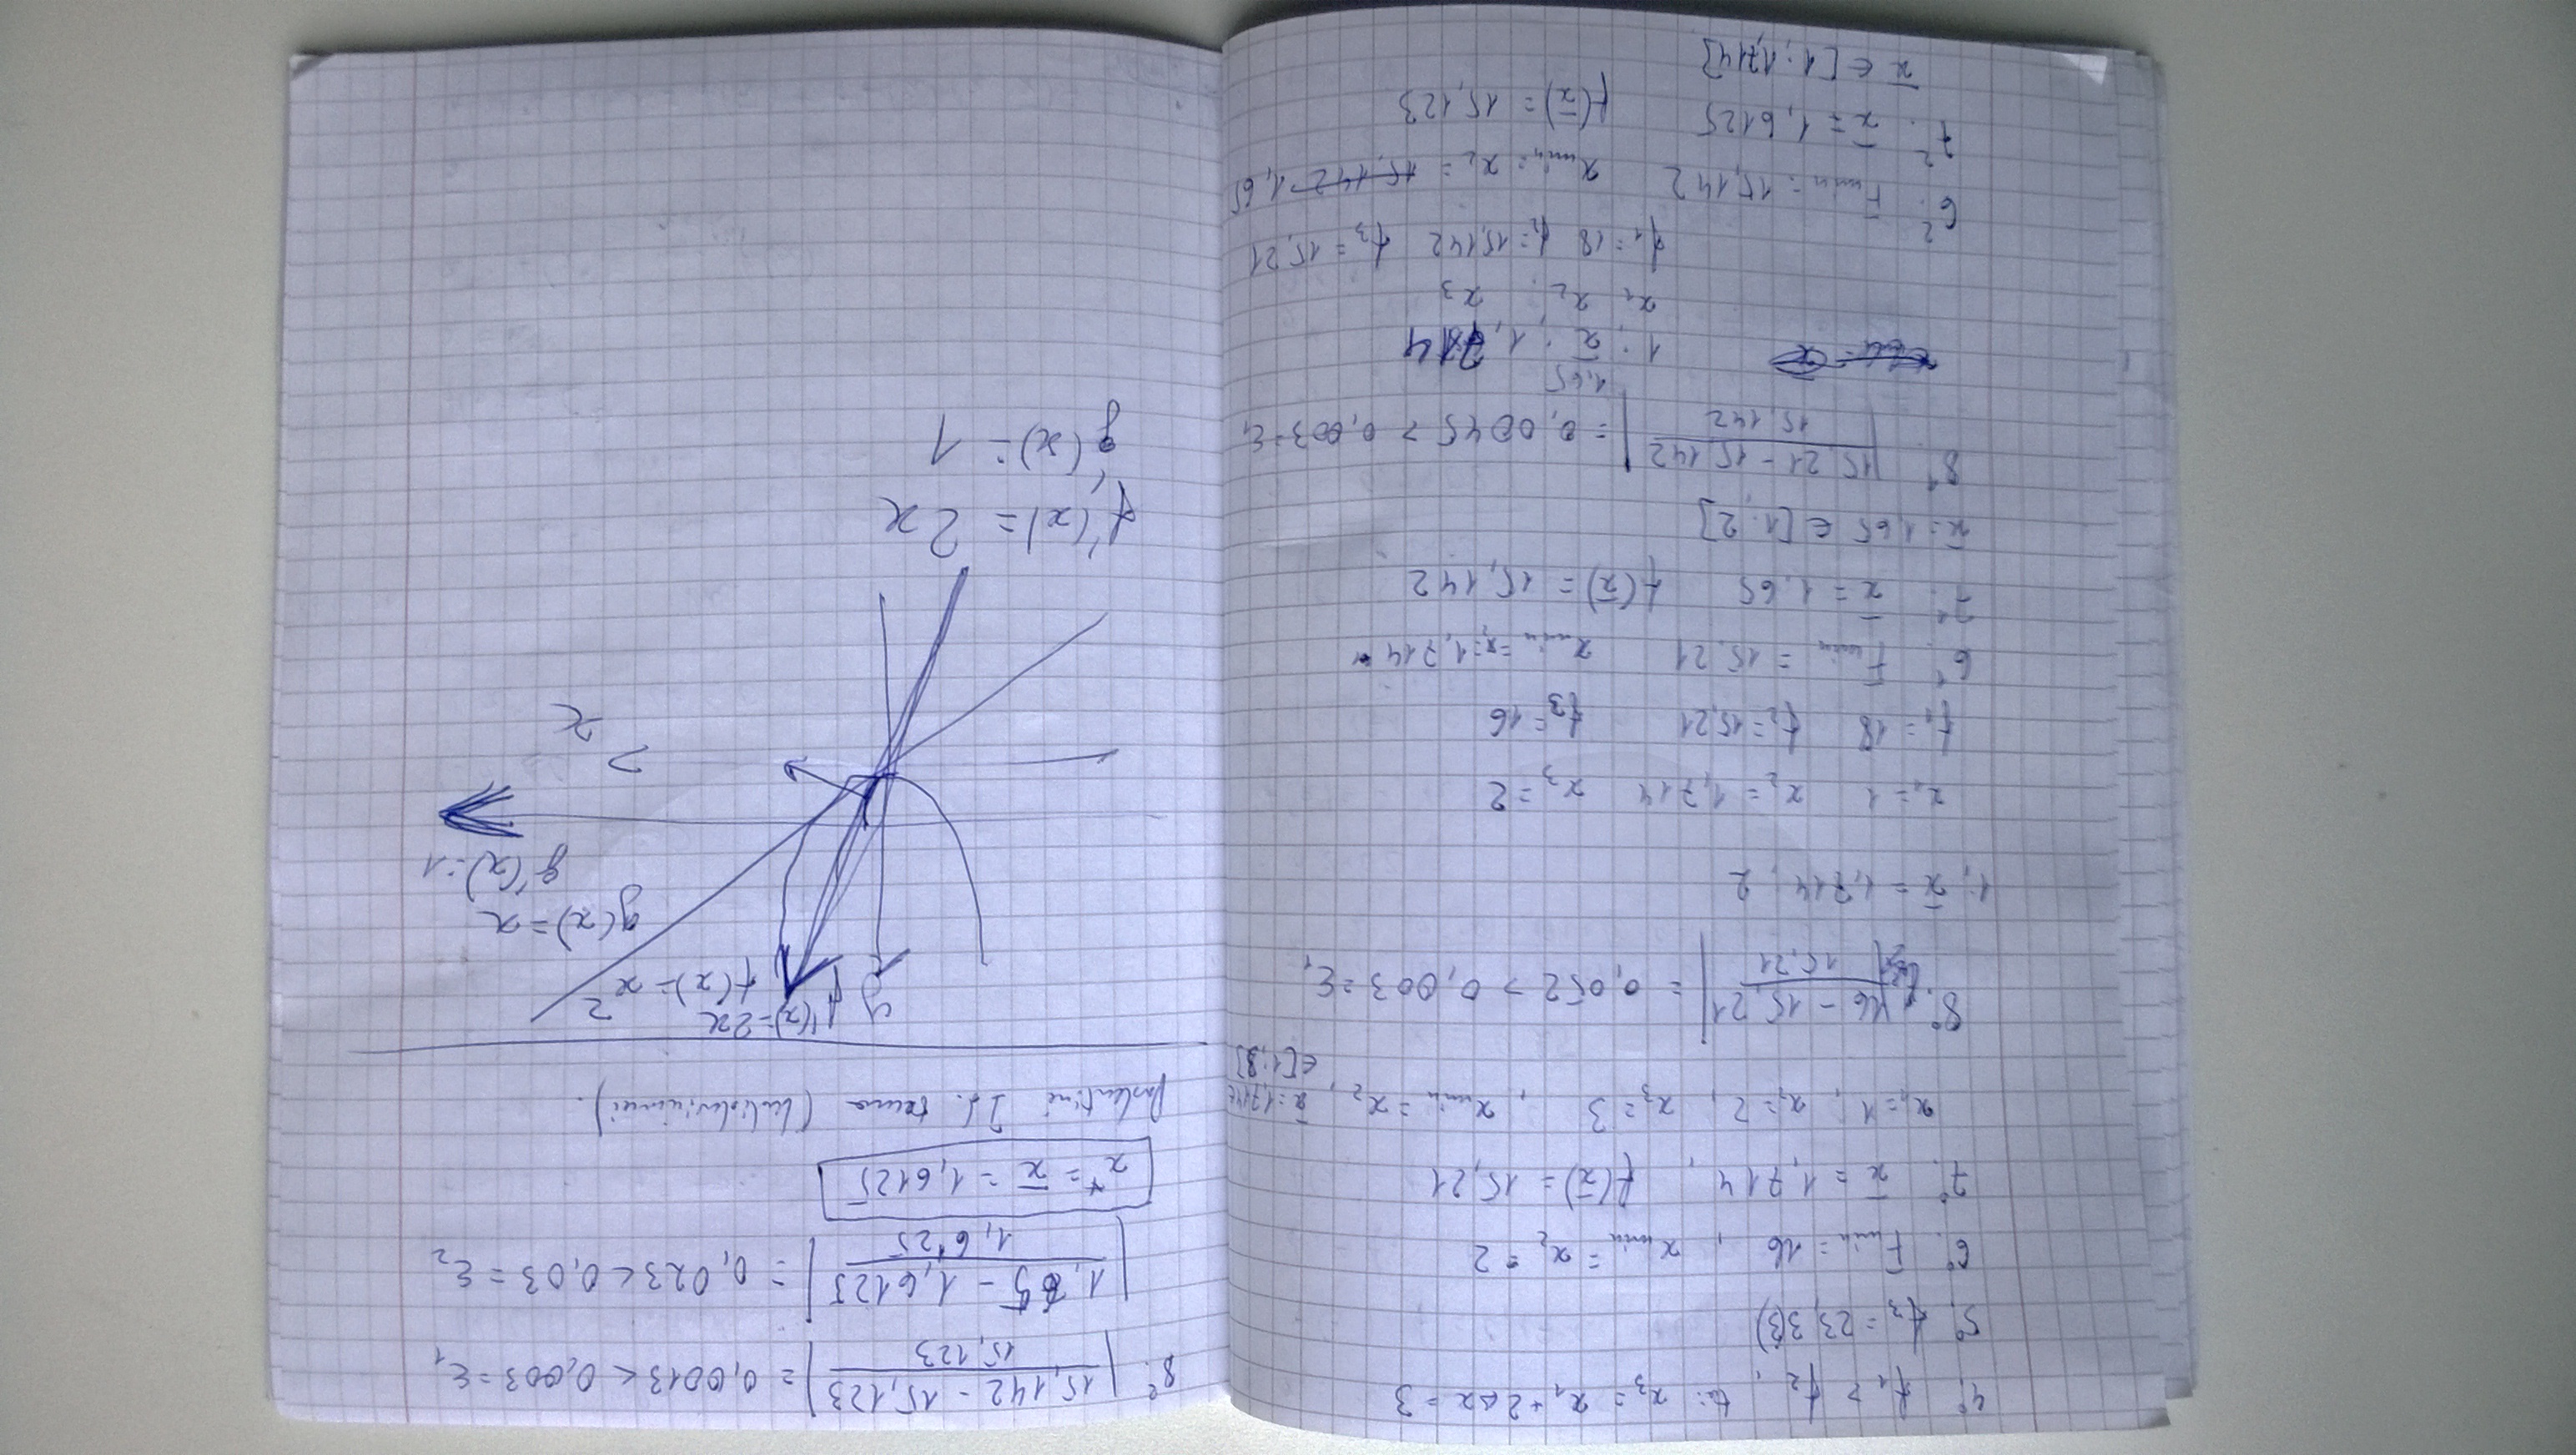 4⁰. f₁ > f₂, tai: x₃ = x₁ + 2Δx = 3
5⁰. f₃ = 23,3(3)
6⁰. Fmin = 16, xmin = x₂ = 2
7⁰. x̄ = 1,714, f(x̄) = 15,21
x₁ = 1, x₂ = 2, x₃ = 3, xmin = x₂, x̄ = 1,714 ∈
∈ [1; 3]
8⁰. |(16 − 15,21)/15,21| = 0,052 > 0,003 = ε₁
1; x̄ = 1,714; 2
x₁ = 1 x₂ = 1,714 x₃ = 2
f₁ = 18 f₂ = 15,21 f₃ = 16
6¹. Fmin = 15,21 xmin = x₂ = 1,714
7¹. x̄ = 1,65 f(x̄) = 15,142
x̄ = 1,65 ∈ [1; 2]
8¹. |(15,21 − 15,142)/15,142| = 0,0045 > 0,003 = ε₁
1,65
1; x̄; 1,714
x₁ x₂ x₃
f₁ = 18 f₂ = 15,142 f₃ = 15,21
6². Fmin = 15,142 xmin = x₂ = 15,142 1,65
7². x̄ = 1,6125 f(x̄) = 15,123
x̄ ∈ [1; 1,714]
8². |(15,142 − 15,123)/15,123| = 0,0013 < 0,003 = ε₁
|(1,65 − 1,6125)/1,6125| = 0,023 < 0,03 = ε₂
x* = x̄ = 1,6125
Paskutinė tema
y f'(x) = 2x
f(x) = x²
g(x) = x
g'(x) = 1
x
f'(x) = 2x
g'(x) = 1